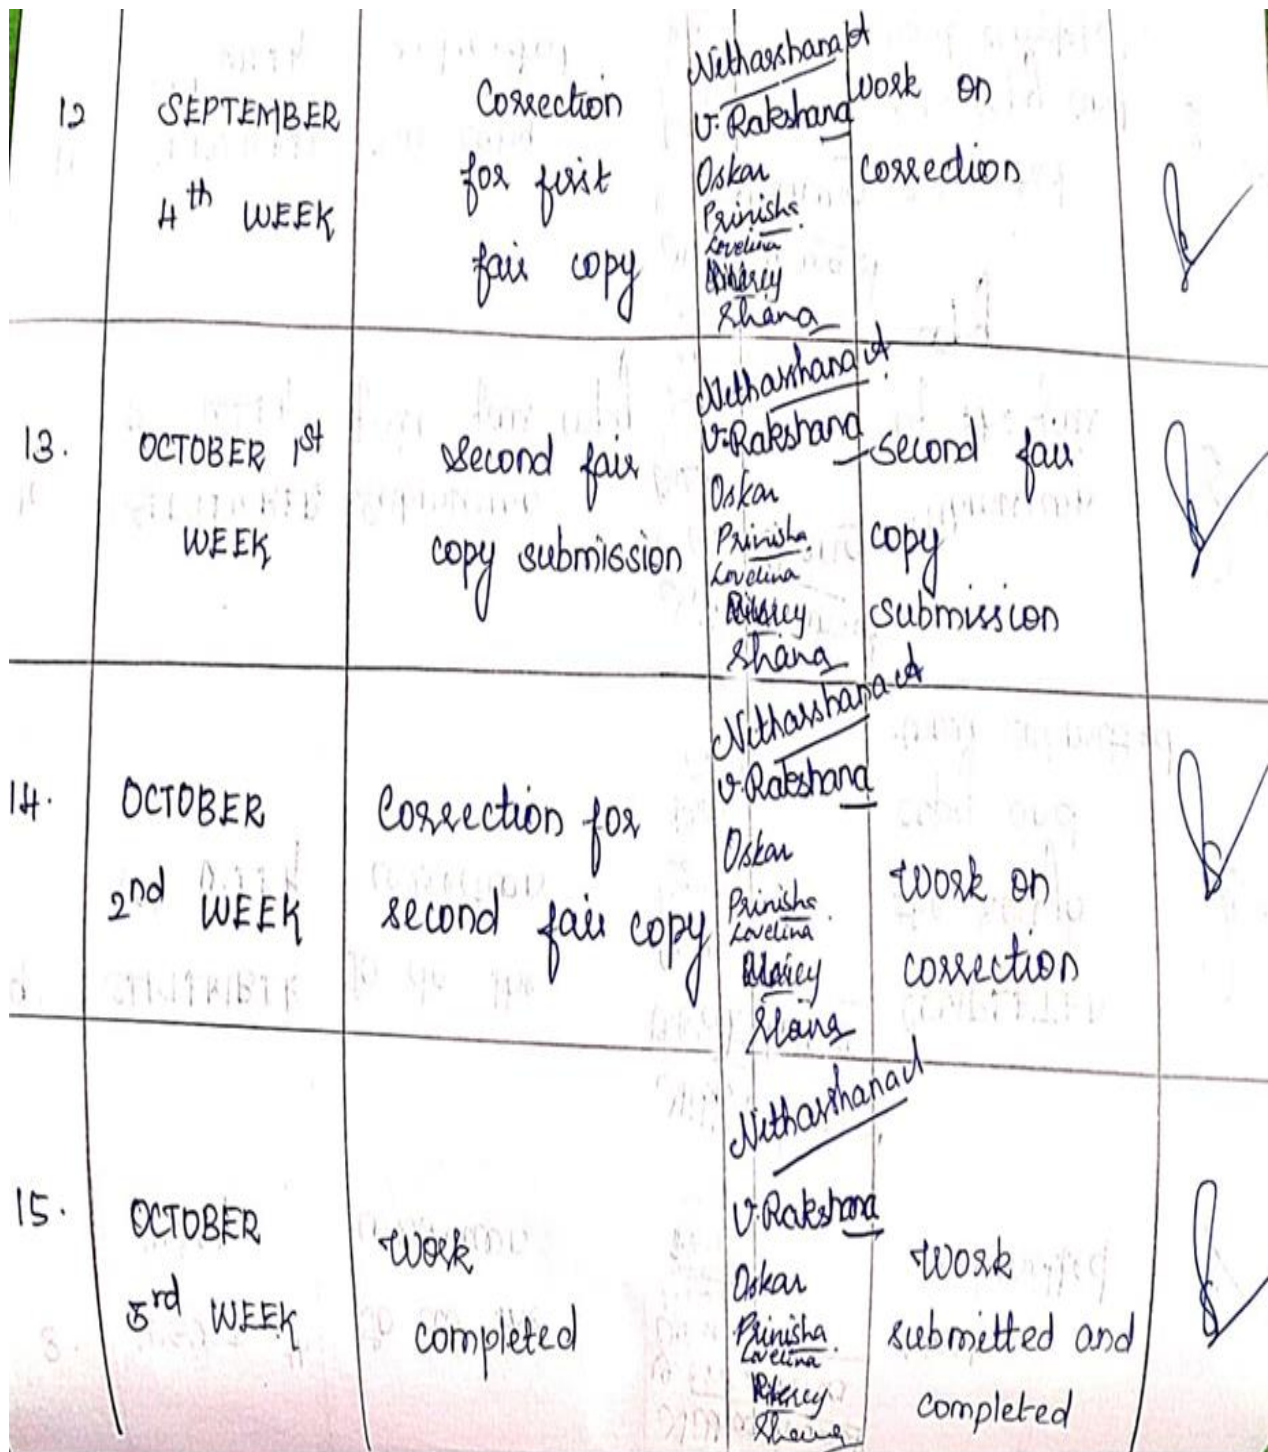 12
SEPTEMBER
4th WEEK
Correction
for first
fair copy
Netharshana A
V. Rakshana
Oskar
Prinisha
Lovelina
Shana
work on
correction
13.
OCTOBER 1st
WEEK
Second fair
copy submission
Netharshana A
V. Rakshana
Oskar
Prinisha
Lovelina
Shana
Second fair
copy
submission
14.
OCTOBER
2nd WEEK
Correction for
second fair copy
Netharshana A
V. Rakshana
Oskar
Prinisha
Lovelina
Shana
Work on
correction
15.
OCTOBER
3rd WEEK
Work
completed
Netharshana A
V. Rakshana
Oskar
Prinisha
Lovelina
Shana
Work
submitted and
completed